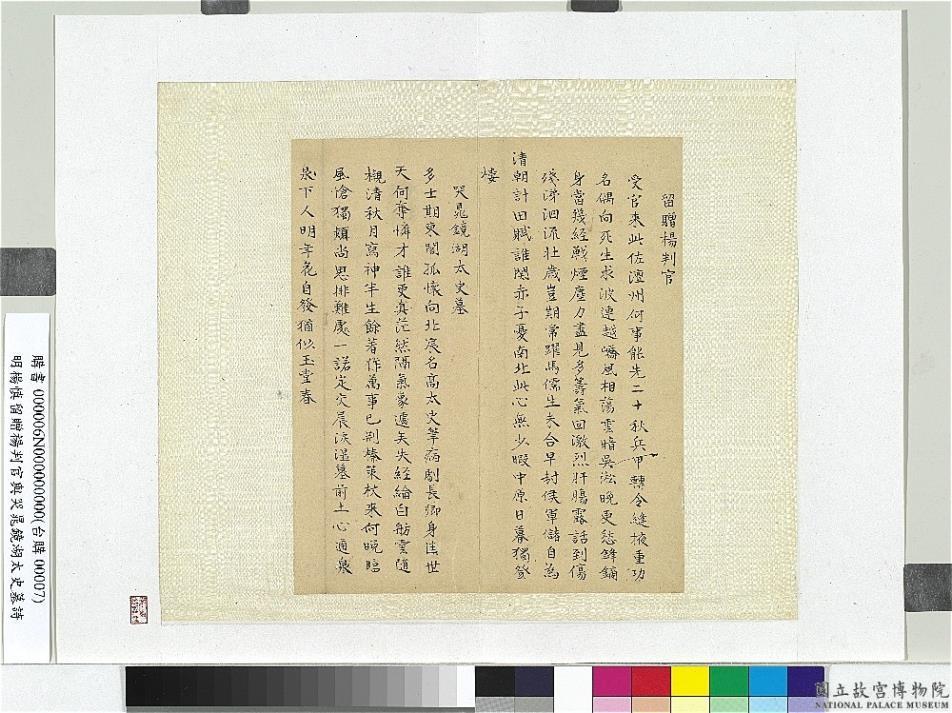 留贈楊判官
受官來此佐澶州何事能先二十秋兵甲轉令縫掖重功
名偶向死生求波連越嶠風相蕩雲暗吳淞晚更愁鋒鏑
身當幾經戰煙塵力盡見多籌氣回激烈肝腸露話到傷
殘涕泗流壯歲豈期常躍馬儒生未合早封侯軍儲自為
清朝計田賦誰關赤子憂南北此心無少暇中原日暮獨登
樓
哭晁鏡湖太史墓
多士期東閣孤懷向北宸名高太史筆病劇長卿身佳世
天何奪憐才誰更真茫然隔氣象遽矣失經綸白舫雲隨
櫬清秋月寫神半生餘著作萬事已荊榛策杖來何晚臨
風愴獨頻尚思排難處一諾定交晨淚溼墓前土心通泉
泉下人明年花自發猶似玉堂春
購書 000006N000000000(台購 00007)
明楊慎留贈楊判官與哭晁鏡湖太史墓詩
國立故宮博物院
NATIONAL PALACE MUSEUM